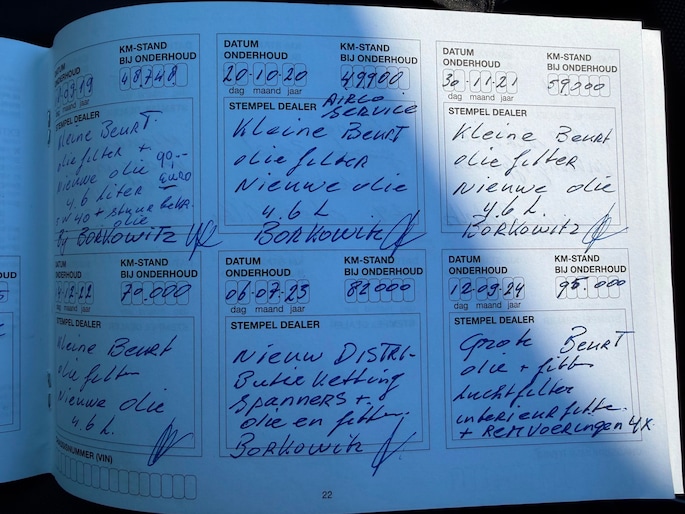 DATUM
ONDERHOUD
KM-STAND
BIJ ONDERHOUD
09 19
48748
dag maand jaar
STEMPEL DEALER
Kleine Beurt.
olie filter +
Nieuwe olie 90,--
4.6 Liter EURO
5W40 + stuur bekr.
olie
By BORKOWITZ
DATUM
ONDERHOUD
KM-STAND
BIJ ONDERHOUD
20-10-20
49900
dag maand jaar
STEMPEL DEALER
AIRCO
SERVICE
Kleine Beurt
olie filter
Nieuwe olie
4.6 L
BORKOWITZ
DATUM
ONDERHOUD
KM-STAND
BIJ ONDERHOUD
30-11-21
59.000
dag maand jaar
STEMPEL DEALER
Kleine Beurt
olie filter
Nieuwe olie
4.6 L.
BORKOWITZ
DATUM
ONDERHOUD
KM-STAND
BIJ ONDERHOUD
12-22
70.000
dag maand jaar
STEMPEL DEALER
Kleine Beurt
olie filter
Nieuwe olie
4.6 L.
DATUM
ONDERHOUD
KM-STAND
BIJ ONDERHOUD
06-07-23
82000
dag maand jaar
STEMPEL DEALER
Nieuw DISTRI-
Butie Ketting
spanners +
olie en filter
BORKOWITZ
DATUM
ONDERHOUD
KM-STAND
BIJ ONDERHOUD
12-09-24
95.000
dag maand jaar
STEMPEL DEALER
Grote Beurt
olie + filter
Luchtfilter
interieurfilter
+ REMVOERINGEN 4X
(VIN)
22